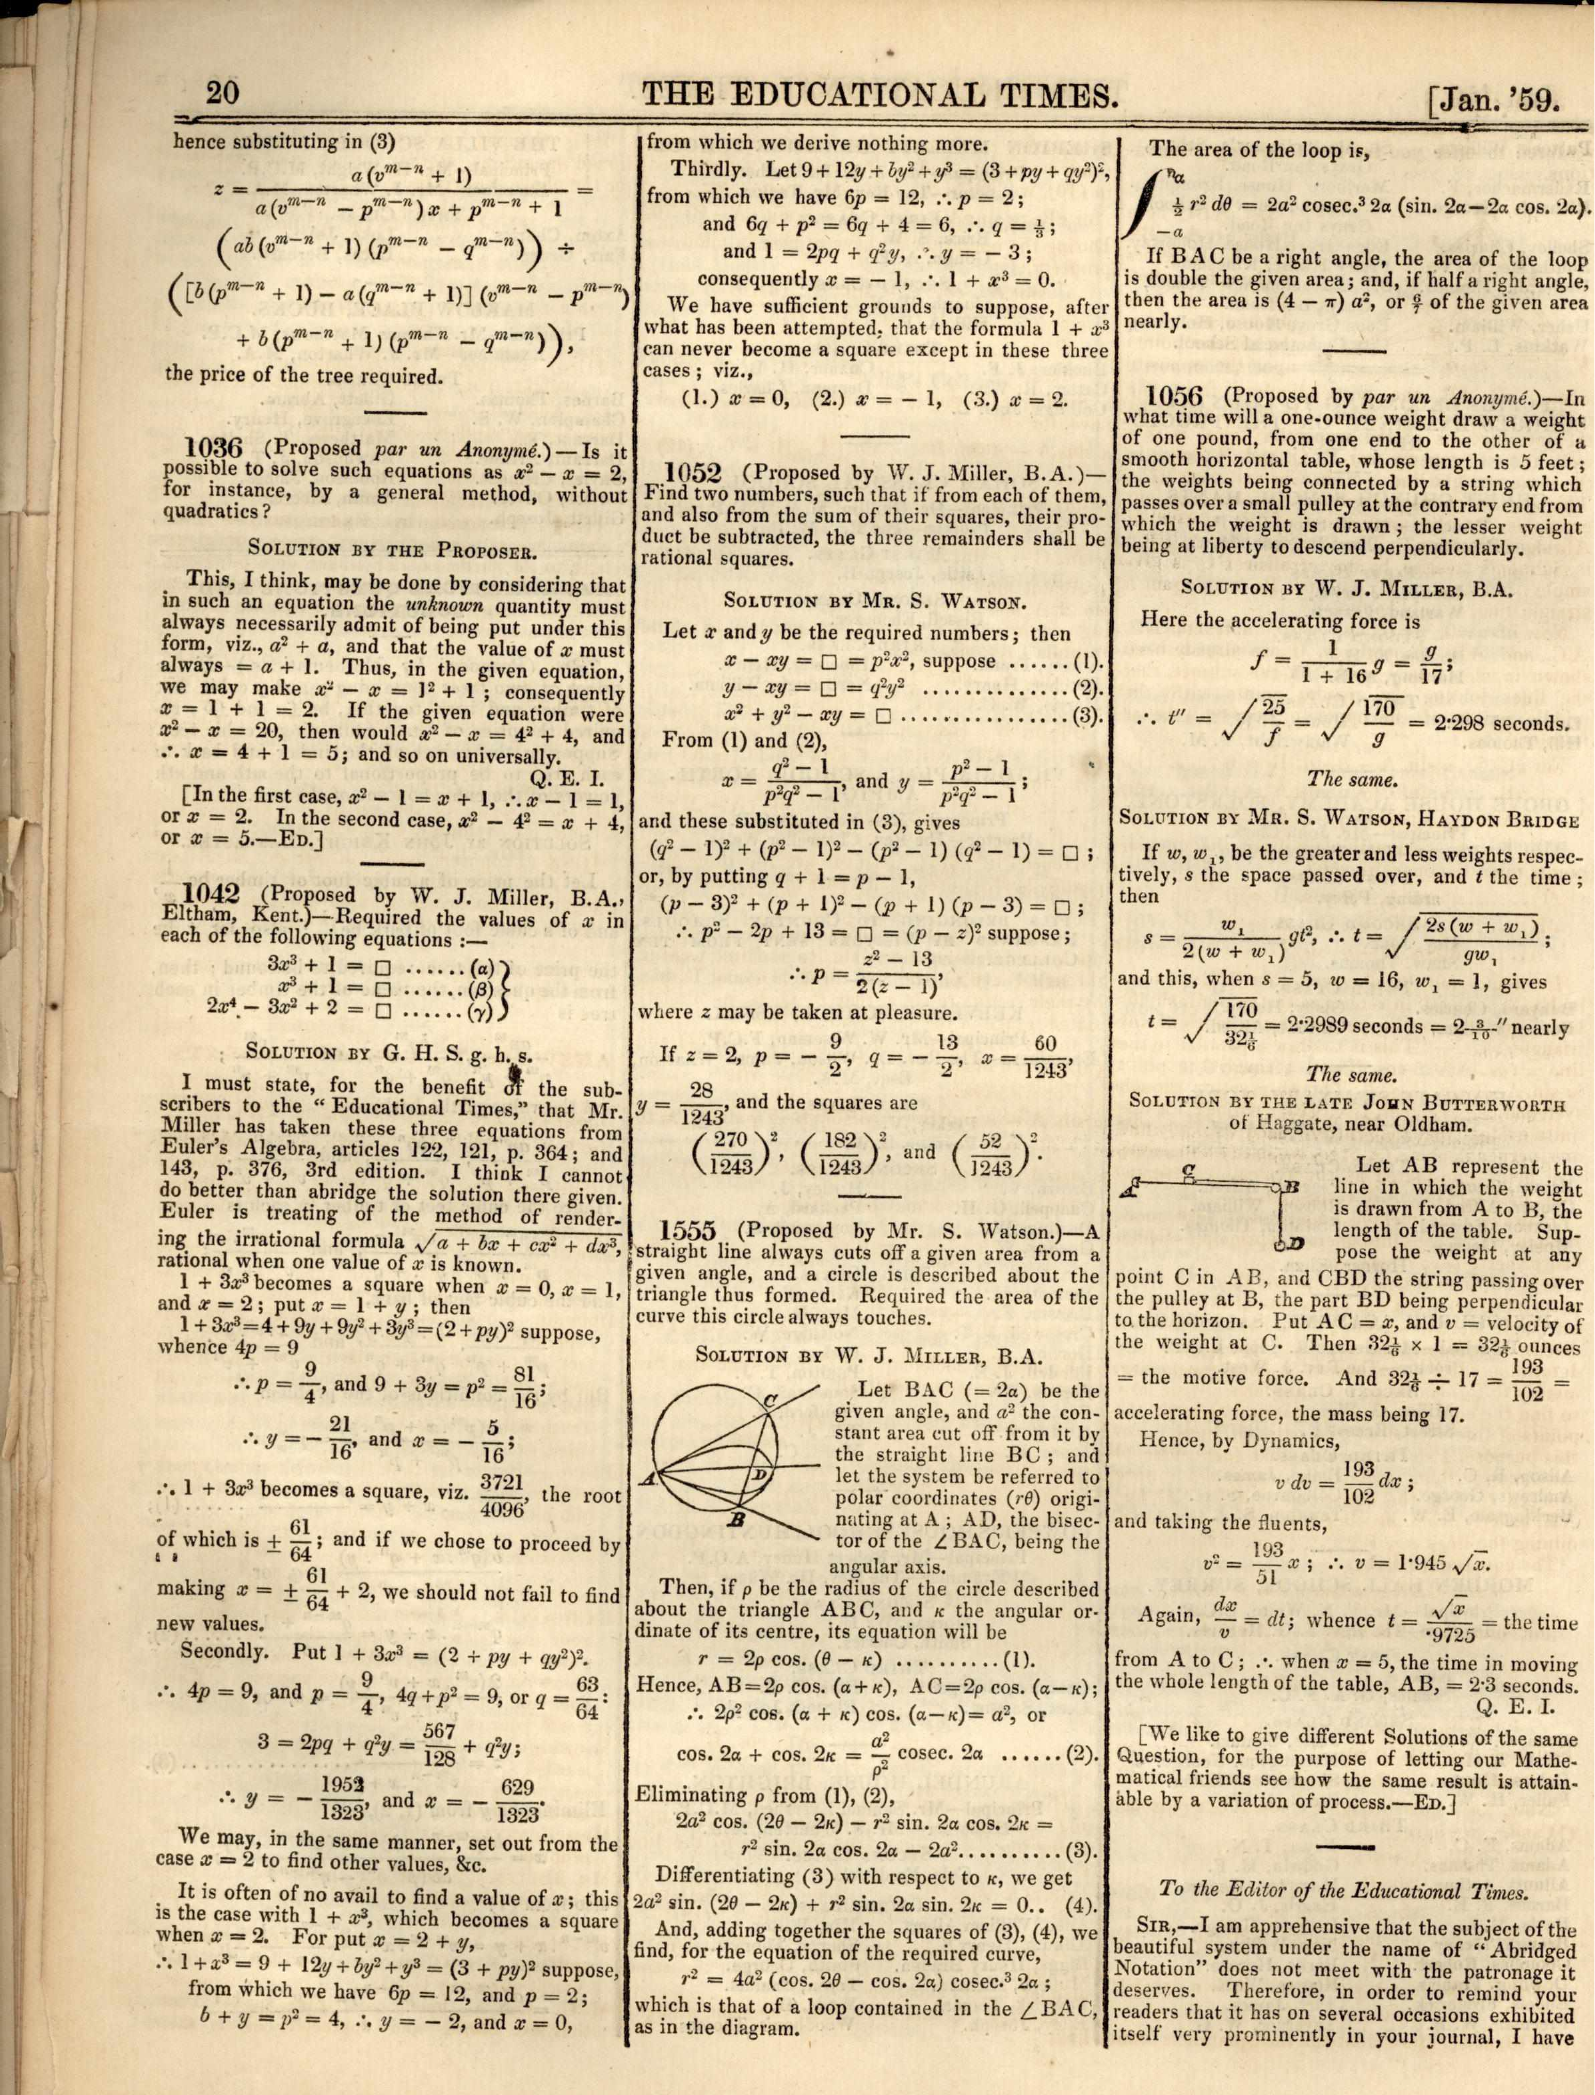 20
THE EDUCATIONAL TIMES.
[Jan. '59.
hence substituting in (3)
z = a(v^{m−n} + 1) / (a(v^{m−n} − p^{m−n})x + p^{m−n} + 1) =
(ab(v^{m−n} + 1)(p^{m−n} − q^{m−n})) ÷
([b(p^{m−n} + 1) − a(q^{m−n} + 1)](v^{m−n} − p^{m−n})
+ b(p^{m−n} + 1)(p^{m−n} − q^{m−n})),
the price of the tree required.
1036 (Proposed par un Anonymé.)—Is it
possible to solve such equations as x² − x = 2,
for instance, by a general method, without
quadratics?
SOLUTION BY THE PROPOSER.
This, I think, may be done by considering that
in such an equation the unknown quantity must
always necessarily admit of being put under this
form, viz., a² + a, and that the value of x must
always = a + 1. Thus, in the given equation,
we may make x² − x = 1² + 1; consequently
x = 1 + 1 = 2. If the given equation were
x² − x = 20, then would x² − x = 4² + 4, and
∴ x = 4 + 1 = 5; and so on universally.
Q. E. I.
[In the first case, x² − 1 = x + 1, ∴ x − 1 = 1,
or x = 2. In the second case, x² − 4² = x + 4,
or x = 5.—ED.]
1042 (Proposed by W. J. Miller, B.A.,
Eltham, Kent.)—Required the values of x in
each of the following equations :—
3x³ + 1 = □ ......(α)
x³ + 1 = □ ......(β)
2x⁴ − 3x² + 2 = □ ......(γ)
SOLUTION BY G. H. S. g. h. s.
I must state, for the benefit of the sub-
scribers to the "Educational Times," that Mr.
Miller has taken these three equations from
Euler's Algebra, articles 122, 121, p. 364; and
143, p. 376, 3rd edition. I think I cannot
do better than abridge the solution there given.
Euler is treating of the method of render-
ing the irrational formula √(a + bx + cx² + dx³),
rational when one value of x is known.
1 + 3x³ becomes a square when x = 0, x = 1,
and x = 2; put x = 1 + y; then
1 + 3x³ = 4 + 9y + 9y² + 3y³ = (2 + py)² suppose,
whence 4p = 9
∴ p = 9/4, and 9 + 3y = p² = 81/16;
∴ y = − 21/16, and x = − 5/16;
∴ 1 + 3x³ becomes a square, viz. 3721/4096, the root
of which is ± 61/64; and if we chose to proceed by
making x = ± 61/64 + 2, we should not fail to find
new values.
Secondly. Put 1 + 3x³ = (2 + py + qy²)².
∴ 4p = 9, and p = 9/4, 4q + p² = 9, or q = 63/64:
3 = 2pq + q²y = 567/128 + q²y;
∴ y = − 1952/1323, and x = − 629/1323.
We may, in the same manner, set out from the
case x = 2 to find other values, &c.
It is often of no avail to find a value of x; this
is the case with 1 + x³, which becomes a square
when x = 2. For put x = 2 + y,
∴ 1 + x³ = 9 + 12y + by² + y³ = (3 + py)² suppose,
from which we have 6p = 12, and p = 2;
b + y = p² = 4, ∴ y = − 2, and x = 0,
from which we derive nothing more.
Thirdly. Let 9 + 12y + by² + y³ = (3 + py + qy²)²,
from which we have 6p = 12, ∴ p = 2;
and 6q + p² = 6q + 4 = 6, ∴ q = 1/3;
and 1 = 2pq + q²y, ∴ y = − 3;
consequently x = − 1, ∴ 1 + x³ = 0.
We have sufficient grounds to suppose, after
what has been attempted, that the formula 1 + x³
can never become a square except in these three
cases; viz.,
(1.) x = 0, (2.) x = − 1, (3.) x = 2.
1052 (Proposed by W. J. Miller, B.A.)—
Find two numbers, such that if from each of them,
and also from the sum of their squares, their pro-
duct be subtracted, the three remainders shall be
rational squares.
SOLUTION BY MR. S. WATSON.
Let x and y be the required numbers; then
x − xy = □ = p²x², suppose ......(1).
y − xy = □ = q²y² ...............(2).
x² + y² − xy = □ ................(3).
From (1) and (2),
x = (q² − 1)/(p²q² − 1), and y = (p² − 1)/(p²q² − 1);
and these substituted in (3), gives
(q² − 1)² + (p² − 1)² − (p² − 1)(q² − 1) = □;
or, by putting q + 1 = p − 1,
(p − 3)² + (p + 1)² − (p + 1)(p − 3) = □;
∴ p² − 2p + 13 = □ = (p − z)² suppose;
∴ p = (z² − 13)/(2(z − 1)),
where z may be taken at pleasure.
If z = 2, p = − 9/2, q = − 13/2, x = 60/1243,
y = 28/1243, and the squares are
(270/1243)², (182/1243)², and (52/1243)².
1555 (Proposed by Mr. S. Watson.)—A
straight line always cuts off a given area from a
given angle, and a circle is described about the
triangle thus formed. Required the area of the
curve this circle always touches.
SOLUTION BY W. J. MILLER, B.A.
C
A
D
B
Let BAC (= 2α) be the
given angle, and a² the con-
stant area cut off from it by
the straight line BC; and
let the system be referred to
polar coordinates (rθ) origi-
nating at A; AD, the bisec-
tor of the ∠BAC, being the
angular axis.
Then, if ρ be the radius of the circle described
about the triangle ABC, and κ the angular or-
dinate of its centre, its equation will be
r = 2ρ cos. (θ − κ) ..........(1).
Hence, AB = 2ρ cos. (α + κ), AC = 2ρ cos. (α − κ);
∴ 2ρ² cos. (α + κ) cos. (α − κ) = a², or
cos. 2α + cos. 2κ = a²/ρ² cosec. 2α ......(2).
Eliminating ρ from (1), (2),
2a² cos. (2θ − 2κ) − r² sin. 2α cos. 2κ =
r² sin. 2α cos. 2α − 2a²..........(3).
Differentiating (3) with respect to κ, we get
2a² sin. (2θ − 2κ) + r² sin. 2α sin. 2κ = 0.. (4).
And, adding together the squares of (3), (4), we
find, for the equation of the required curve,
r² = 4a² (cos. 2θ − cos. 2α) cosec.³ 2α;
which is that of a loop contained in the ∠BAC,
as in the diagram.
The area of the loop is,
∫_{−α}^{α} ½ r² dθ = 2a² cosec.³ 2α (sin. 2α − 2α cos. 2α).
If BAC be a right angle, the area of the loop
is double the given area; and, if half a right angle,
then the area is (4 − π) a², or 6/7 of the given area
nearly.
1056 (Proposed by par un Anonymé.)—In
what time will a one-ounce weight draw a weight
of one pound, from one end to the other of a
smooth horizontal table, whose length is 5 feet;
the weights being connected by a string which
passes over a small pulley at the contrary end from
which the weight is drawn; the lesser weight
being at liberty to descend perpendicularly.
SOLUTION BY W. J. MILLER, B.A.
Here the accelerating force is
f = 1/(1 + 16) g = g/17;
∴ t″ = √(25/f) = √(170/g) = 2·298 seconds.
The same.
SOLUTION BY MR. S. WATSON, HAYDON BRIDGE
If w, w₁, be the greater and less weights respec-
tively, s the space passed over, and t the time;
then
s = w₁/(2(w + w₁)) gt², ∴ t = √(2s(w + w₁)/gw₁);
and this, when s = 5, w = 16, w₁ = 1, gives
t = √(170/32⅙) = 2·2989 seconds = 2 3/10″ nearly
The same.
SOLUTION BY THE LATE JOHN BUTTERWORTH
of Haggate, near Oldham.
A
C
B
D
Let AB represent the
line in which the weight
is drawn from A to B, the
length of the table. Sup-
pose the weight at any
point C in AB, and CBD the string passing over
the pulley at B, the part BD being perpendicular
to the horizon. Put AC = x, and v = velocity of
the weight at C. Then 32⅙ × 1 = 32⅙ ounces
= the motive force. And 32⅙ ÷ 17 = 193/102 =
accelerating force, the mass being 17.
Hence, by Dynamics,
v dv = 193/102 dx;
and taking the fluents,
v² = 193/51 x; ∴ v = 1·945 √x.
Again, dx/v = dt; whence t = √x/·9725 = the time
from A to C; ∴ when x = 5, the time in moving
the whole length of the table, AB, = 2·3 seconds.
Q. E. I.
[We like to give different Solutions of the same
Question, for the purpose of letting our Mathe-
matical friends see how the same result is attain-
able by a variation of process.—ED.]
To the Editor of the Educational Times.
SIR,—I am apprehensive that the subject of the
beautiful system under the name of "Abridged
Notation" does not meet with the patronage it
deserves. Therefore, in order to remind your
readers that it has on several occasions exhibited
itself very prominently in your journal, I have